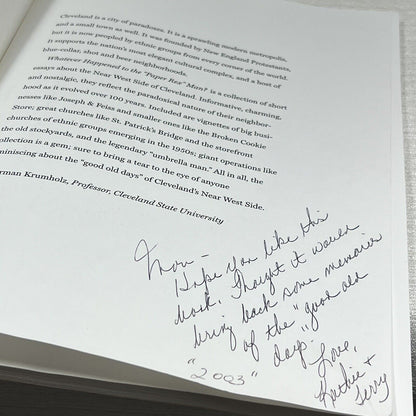 Cleveland is a city of paradoxes. It is a sprawling modern metropolis,
and a small town as well. It was founded by New England Protestants,
but it is now peopled by ethnic groups from every corner of the world.
It supports the nation's most elegant cultural complex, and a host of
blue-collar, shot and beer neighborhoods.
Whatever Happened to the "Paper Rex" Man? is a collection of short
essays about the Near West Side of Cleveland. Informative, charming,
and nostalgic, they reflect the paradoxical nature of their neighbor-
hood as it evolved over 100 years. Included are vignettes of big busi-
nesses like Joseph & Feiss and smaller ones like the Broken Cookie
Store; great churches like St. Patrick's Bridge and the storefront
churches of ethnic groups emerging in the 1950s; giant operations like
the old stockyards, and the legendary "umbrella man." All in all, the
ollection is a gem; sure to bring a tear to the eye of anyone
miniscing about the "good old days" of Cleveland's Near West Side.
rman Krumholz, Professor, Cleveland State University
Mom –
Hope you like this
book. Thought it would
bring back some memories
of the "good old
days."
Love,
Kathie +
Terry
"2003"